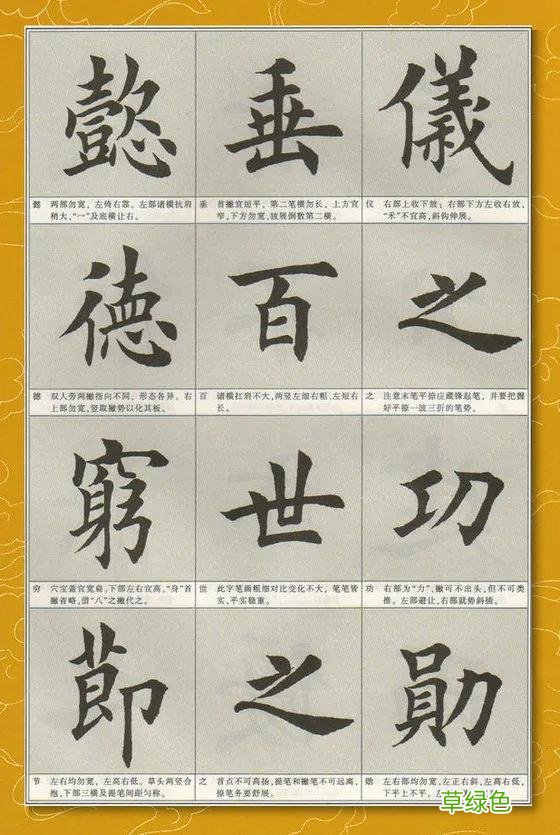 儀
仪 右部上收下放；右部下方左收右放，
“禾”不宜高，斜钩伸展。
之
之 注意末笔平捺应藏锋起笔，并要把握
好平捺一波三折的笔势。
功
功 右部为“力”，撇可不出头，但不可类
推。左部避让，右部就势斜插。
勛
勋 左右部均勿宽，左正右斜，左高右低，
下平上不平。
垂
垂 首撇宜短平，第二笔横勿长，上方宜
窄，下方勿宽，独展倒数第二横。
百
百 诸横扛肩不大，两竖左细右粗、左短右
长。
世
世 此字笔画粗细对比变化不大，笔笔皆
实，平实稳重。
之
之 首点不可高扬，提笔和撇笔不可远离，
捺笔务要舒展。
懿
懿 两部勿宽，左倚右靠。左部诸横抗肩
稍大，“冖”及底横让右。
德
德 双人旁两撇指向不同，形态各异。右
上部勿宽，竖取撇势以化其板。
窮
穷 穴宝盖宜宽扁。下部左右宜高。“身”首
撇省略，借“八”之撇代之。
節
节 左右均勿宽，左高右低。草头两竖合
抱，下部三横及提笔间距匀称。
草绿色